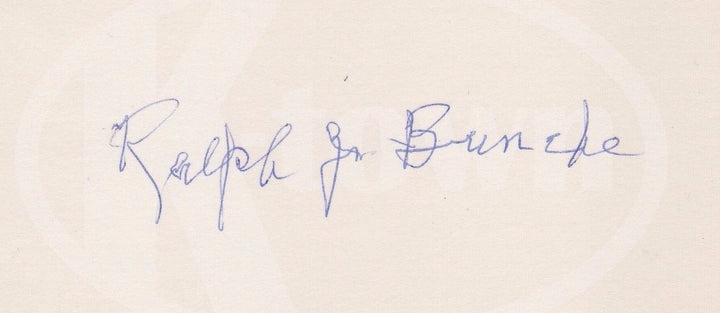 Ralph J. Bunche